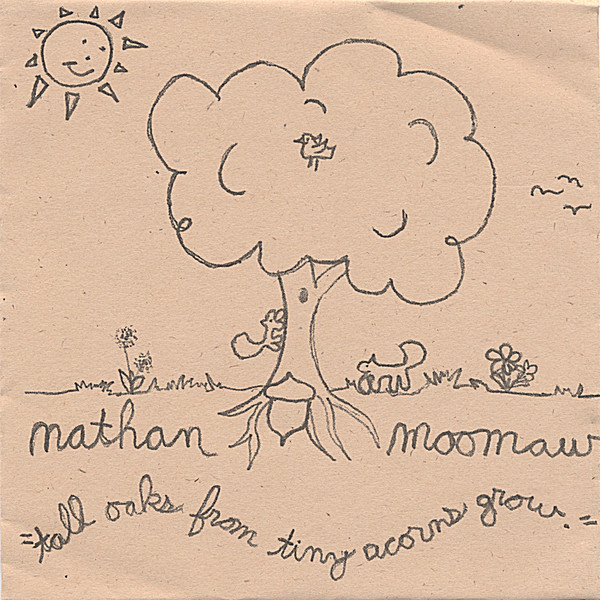 nathan moomaw
=tall oaks from tiny acorns grow.=